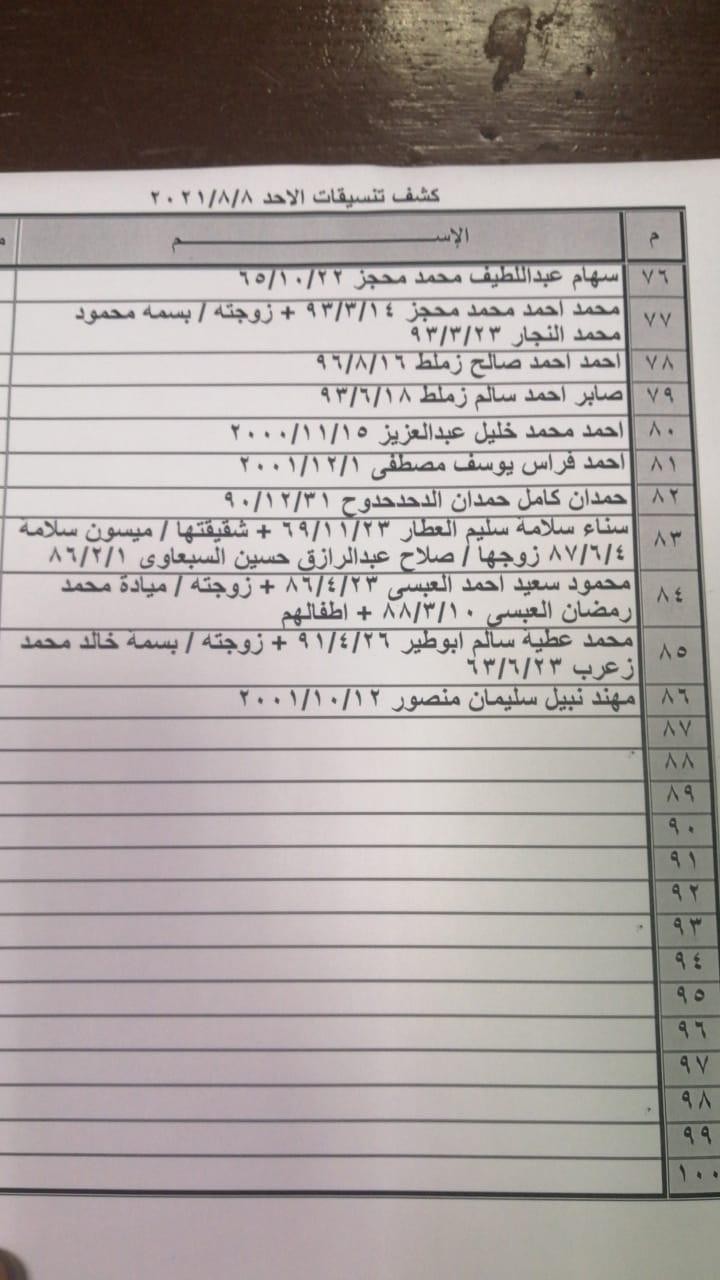 كشف تنسيقات الاحد ٢٠٢١/٨/٨
م الإســـــــــم
٧٦ سهام عبداللطيف محمد محجز ٦٥/١٠/٢٢
٧٧ محمد احمد محمد محجز ٩٣/٣/١٤ + زوجته / بسمه محمود
محمد النجار ٩٣/٣/٢٣
٧٨ احمد احمد صالح زملط ٩٦/٨/١٦
٧٩ صابر احمد سالم زملط ٩٣/٦/١٨
٨٠ احمد محمد خليل عبدالعزيز ٢٠٠٠/١١/١٥
٨١ احمد فراس يوسف مصطفى ٢٠٠١/١٢/١
٨٢ حمدان كامل حمدان الدحدحدوح ٩٠/١٢/٣١
٨٣ سناء سلامة سليم العطار ٦٩/١١/٢٣ + شقيقتها / ميسون سلامة
٨٧/٦/٤ زوجها / صلاح عبدالرازق حسين السبعاوى ٨٦/٢/١
٨٤ محمود سعيد احمد العبسى ٨٦/٤/٢٣ + زوجته / ميادة محمد
رمضان العبسى ٨٨/٣/١٠ + اطفالهم
٨٥ محمد عطية سالم ابوطير ٩١/٤/٢٦ + زوجته / بسمة خالد محمد
زعرب ٦٣/٦/٢٣
٨٦ مهند نبيل سليمان منصور ٢٠٠١/١٠/١٢
٨٧
٨٨
٨٩
٩٠
٩١
٩٢
٩٣
٩٤
٩٥
٩٦
٩٧
٩٨
٩٩
١٠٠